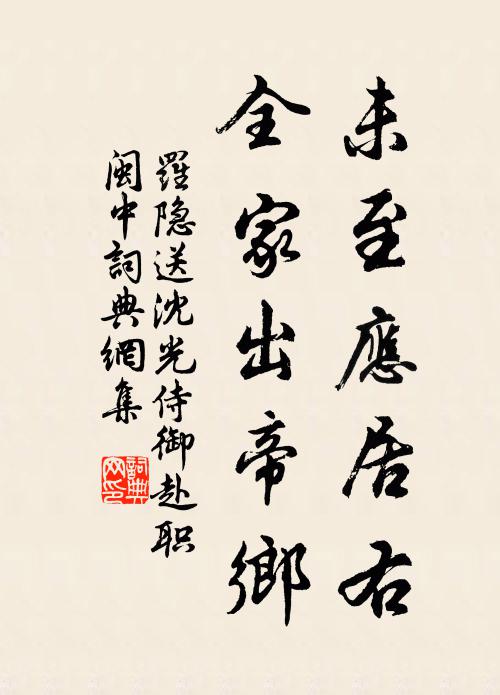 未至應居右
全家出帝鄉
羅隐送沈光侍御赴职
闽中詞典網集
詞典网印